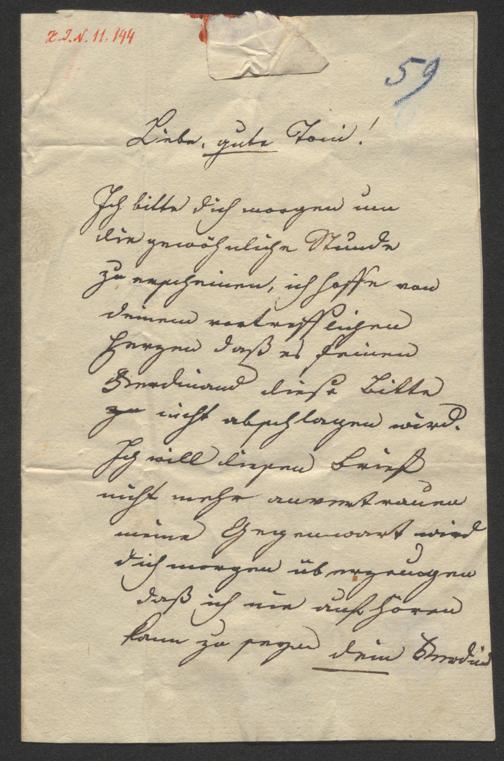 H.I.N. 11.144
59
Liebe, gute Toni!
Ich bitte dich morgen um
die gewöhnliche Stunde
zu erscheinen, ich hoffe von
deinem vortrefflichen
Herzen daß es seinen
Ferdinand diese Bitte
nicht abschlagen wird.
Ich will diesen Brief
nicht mehr anvertrauen
meine Gegenwart wird
dich morgen überzeugen
daß ich nie aufhören
kann zu seyn dein Ferdin